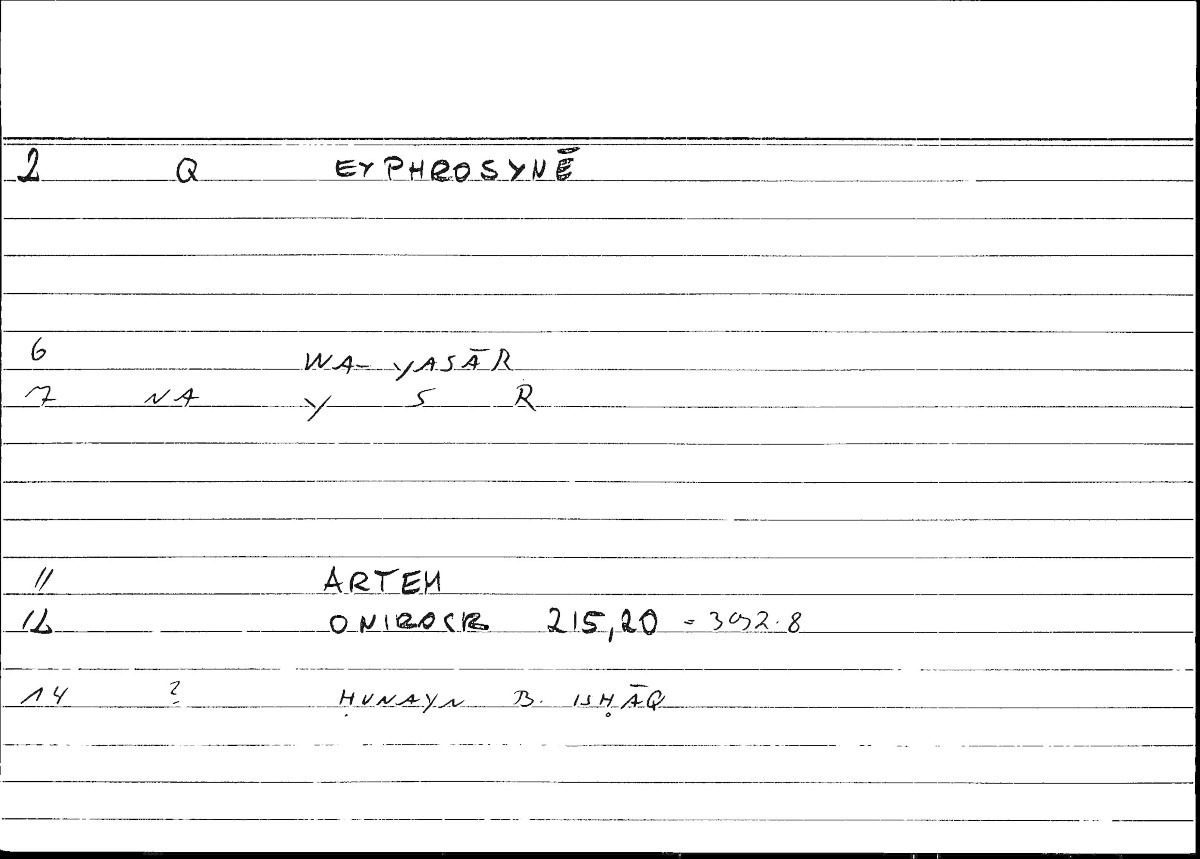 2 Q EYPHROSYNĒ
6 WA- YASĀR
7 NA Y S R
11 ARTEM
12 ONIROCR 215,20 = 392.8
14 ? ḤUNAYN B. ISḤĀQ